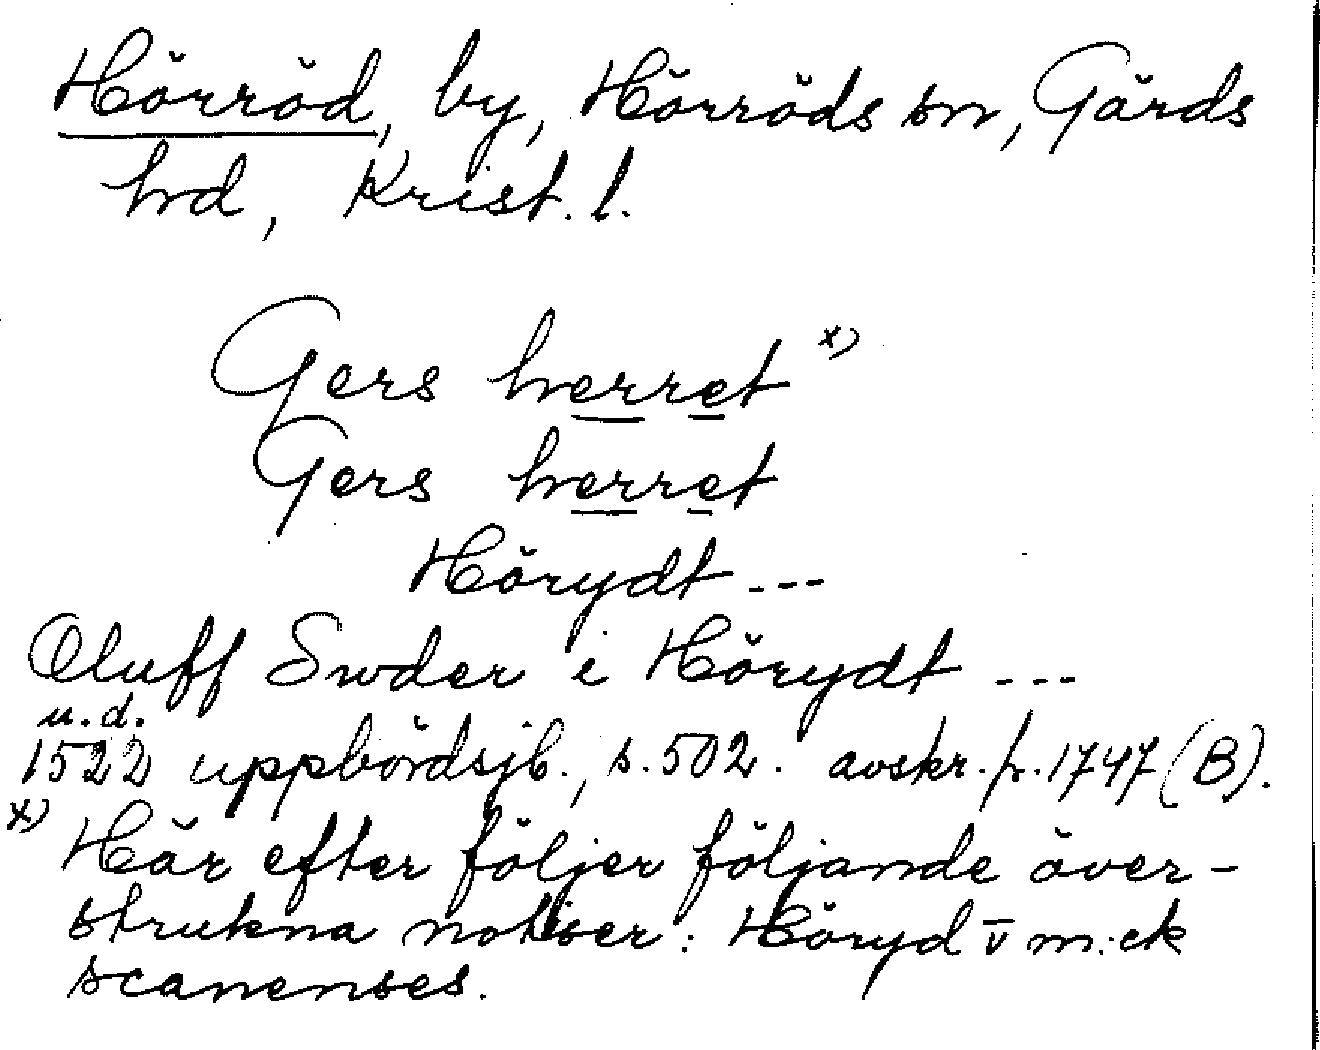 Hörröd, by, Hörröds sn, Gärds
hd, Krist. l.
Gers herret x)
Gers herret
Hörydt ---
Oluff Swder i Hörydt ---
u.d.
1522 uppbördsjb., s. 502. avskr. fr. 1747 (B).
x) Här efter följer följande över-
strukna notiser: Höryd v̄ m:ck
scanenses.